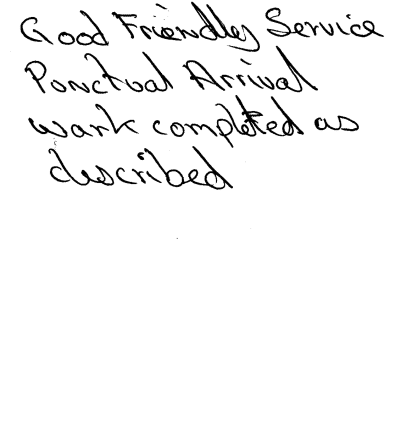 Good Friendley Service
Ponctual Arrival
Work completed as
described